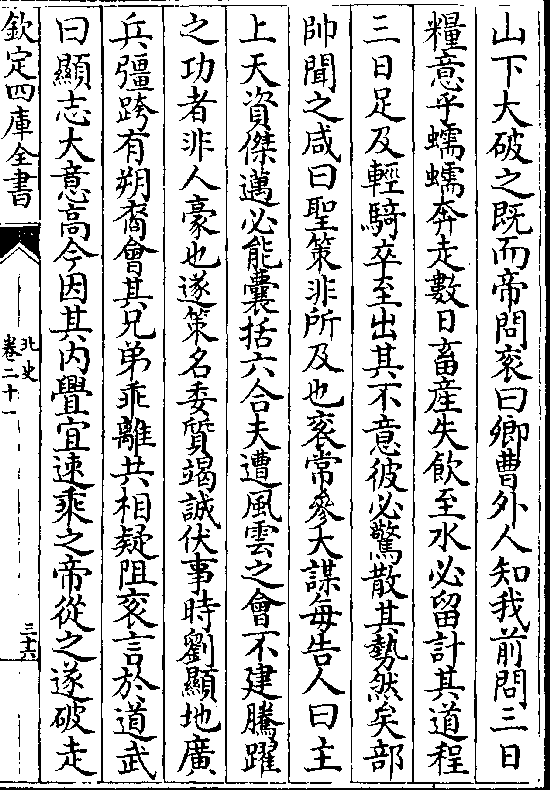 山下大破之既而帝問衮曰卿曹外人知我前問三日
糧意乎蠕蠕奔走數日畜産失飲至水必留計其道程
三日足及輕騎卒至出其不意彼必驚散其勢然矣部
帥聞之咸曰聖策非所及也衮常參大謀每告人曰主
上天資傑邁必能囊括六合夫遭風雲之會不建騰躍
之功者非人豪也遂策名委質竭誠伏事時劉顯地廣
兵彊跨有朔裔會其兄弟乖離共相疑阻衮言於道武
曰顯志大意高今因其内釁宜速乘之帝從之遂破走
欽定四庫全書
北史
卷二十一
三十六